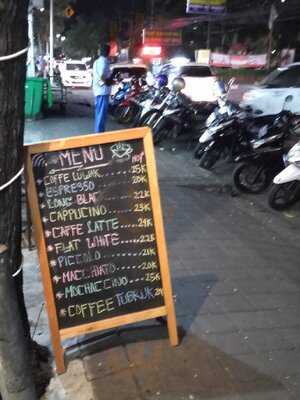 MENU HOT
COFFE LUWAK 25K
ESPRESSO 20K
LONG BLACK 22K
CAPPUCINO 23K
CAFFE LATTE 24K
FLAT WHITE 22K
PICCOLO 21K
MACCHIATO 20K
MOCHACCINO 25K
COFFEE TUBRUK